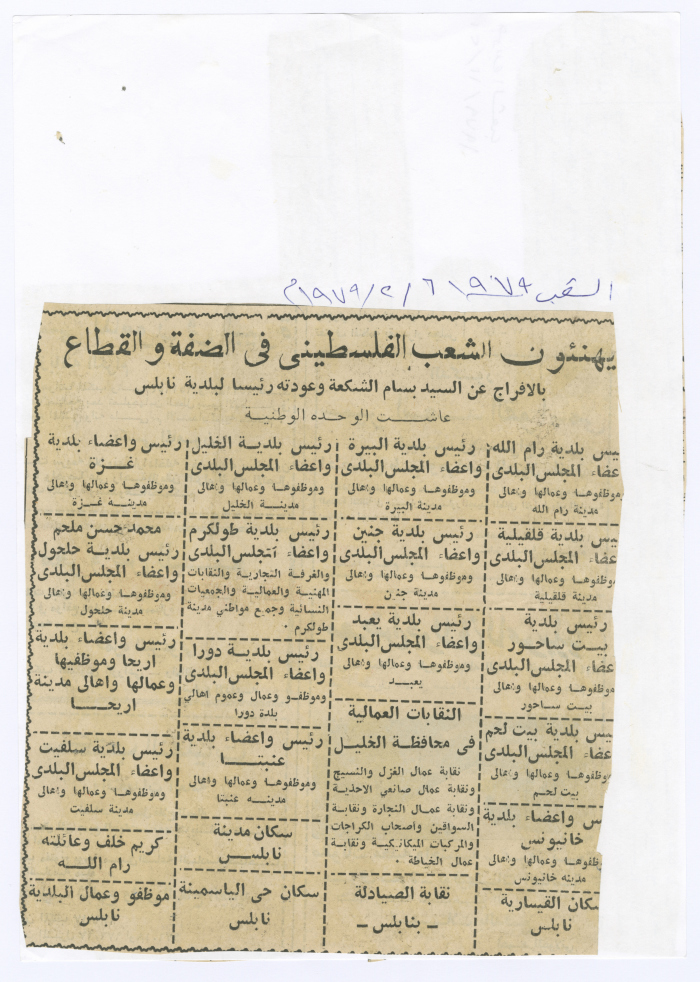 الشعب
يهنئون الشعب الفلسطيني في الضفة والقطاع
بالافراج عن السيد بسام الشكعة وعودته رئيسا لبلدية نابلس
عاشت الوحده الوطنية
يس بلدية رام الله
عضاء المجلس البلدي
موظفوها وعمالها واهالي
مدينة رام الله
يس بلدية قلقيلية
عضاء المجلس البلدي
موظفوها وعمالها واهالي
مدينة قلقيلية
رئيس بلدية
بيت ساحور
عضاء المجلس البلدي
موظفوها وعمالها واهالي
بيت ساحور
يس بلدية بيت لحم
عضاء المجلس البلدي
موظفوها وعمالها واهالي
بيت لحم
س واعضاء بلدية
خانيونس
وظفوها وعمالها واهالي
مدينه خانيونس
سكان القيسارية
نابلس
رئيس بلدية البيرة
واعضاء المجلس البلدي
وموظفوها وعمالها واهالي
مدينة البيرة
رئيس بلدية جنين
واعضاء المجلس البلدي
وموظفوها وعمالها واهالي
مدينة جنين
رئيس بلدية يعبد
واعضاء المجلس البلدي
وموظفوها وعمالها واهالي
يعبد
النقابات العمالية
في محافظة الخليل
نقابة عمال الغزل والنسيج
ونقابة عمال صانعي الاحذية
ونقابة عمال النجارة ونقابة
السواقين واصحاب الكراجات
والمركبات الميكانيكية ونقابة
عمال الخياطة .
نقابة الصيادلة
ـ بنابلس ـ
رئيس بلدية الخليل
واعضاء المجلس البلدي
وموظفوها وعمالها واهالي
مدينة الخليل
رئيس بلدية طولكرم
واعضاء المجلس البلدي
والغرفة التجارية والنقابات
المهنية والعمالية والجمعيات
النسائية وجميع مواطني مدينة
طولكرم .
رئيس بلدية دورا
واعضاء المجلس البلدي
وموظفو وعمال وعموم اهالي
بلدة دورا
رئيس واعضاء بلدية
عنبتا
وموظفوها وعمالها واهالي
مدينه عنبتا
سكان مدينة
نابلس
سكان حي الياسمينة
نابلس
رئيس واعضاء بلدية
غزة
وموظفوها وعمالها واهالي
مدينة غزة
محمد حسن ملحم
رئيس بلدية حلحول
واعضاء المجلس البلدي
وموظفوها وعمالها واهالي
مدينة حلحول
رئيس واعضاء بلدية
اريحا وموظفيها
وعمالها واهالي مدينة
اريحا
رئيس بلدية سلفيت
واعضاء المجلس البلدي
وموظفوها وعمالها واهالي
مدينة سلفيت
كريم خلف وعائلته
رام الله
موظفو وعمال البلدية
نابلس